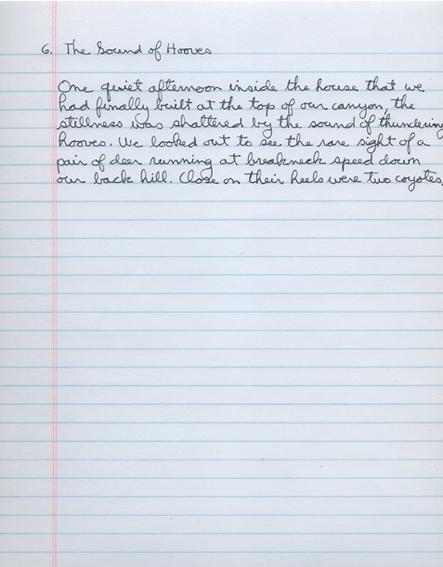 6. The Sound of Hooves
One quiet afternoon inside the house that we
had finally built at the top of our canyon, the
stillness was shattered by the sound of thundering
hooves. We looked out to see the rare sight of a
pair of deer running at breakneck speed down
our back hill. Close on their heels were two coyotes,